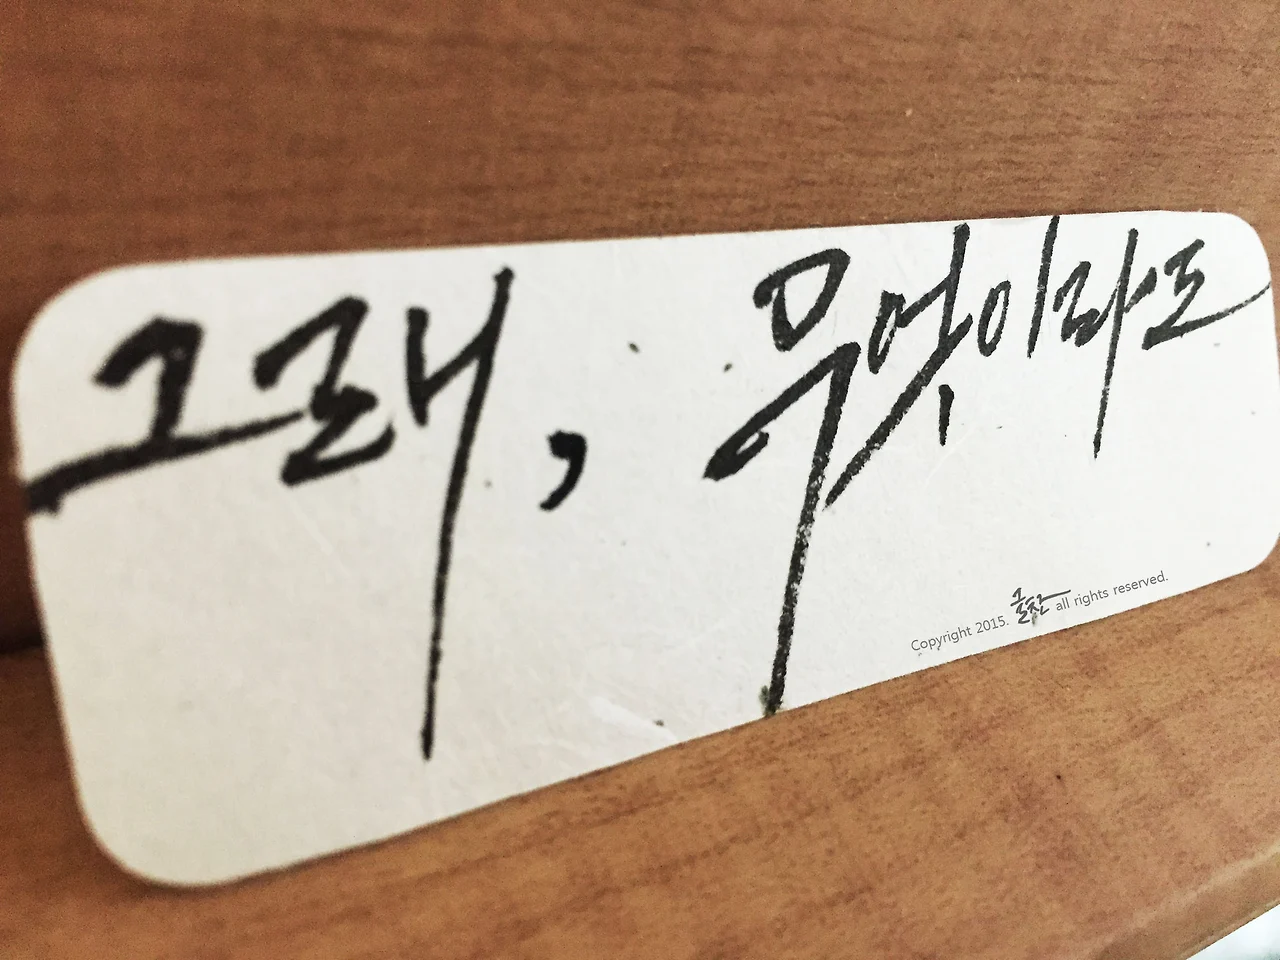 그래, 무엇이라도
Copyright 2015. all rights reserved.